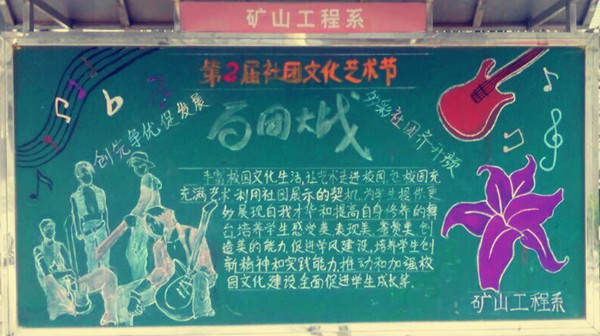 矿山工程系
第2届社团文化艺术节
创先争优促发展
百团大战
多彩社团齐开放
丰富校园文化生活,让艺术走进校园,让校园充
充满艺术,利用社团展示的契机,为学生提供更
好展现自我才华和提高自身修养的舞
台培养学生感觉美、表现美、鉴赏美、创
造美的能力,促进学风建设,培养学生创
新精神和实践能力,推动和加强校
园文化建设全面促进学生成长等
矿山工程系